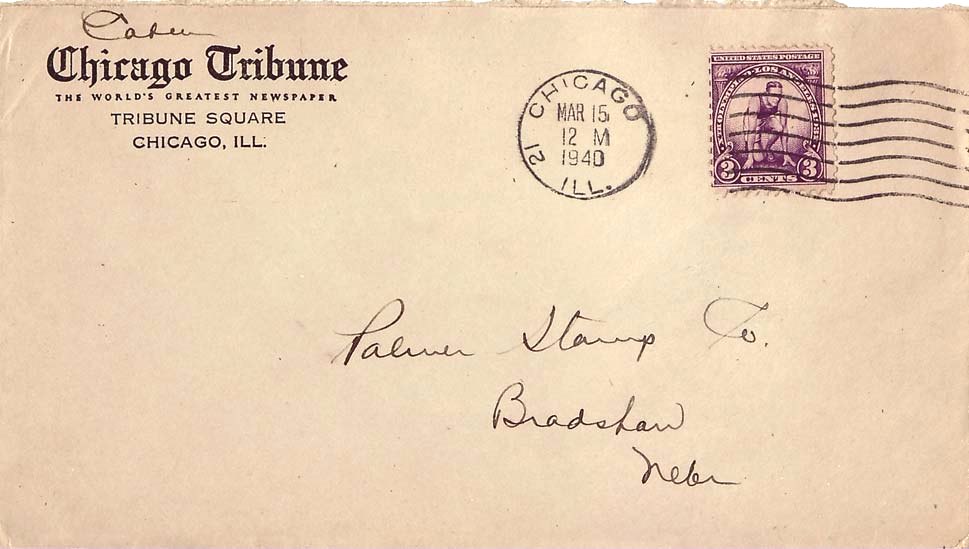 Chicago Tribune
THE WORLD'S GREATEST NEWSPAPER
TRIBUNE SQUARE
CHICAGO, ILL.
CHICAGO
MAR 15
12 M
1940
ILL.
21
UNITED STATES POSTAGE
3 CENTS 3
Palmer Stamp Co.
Bradshaw
Nebr